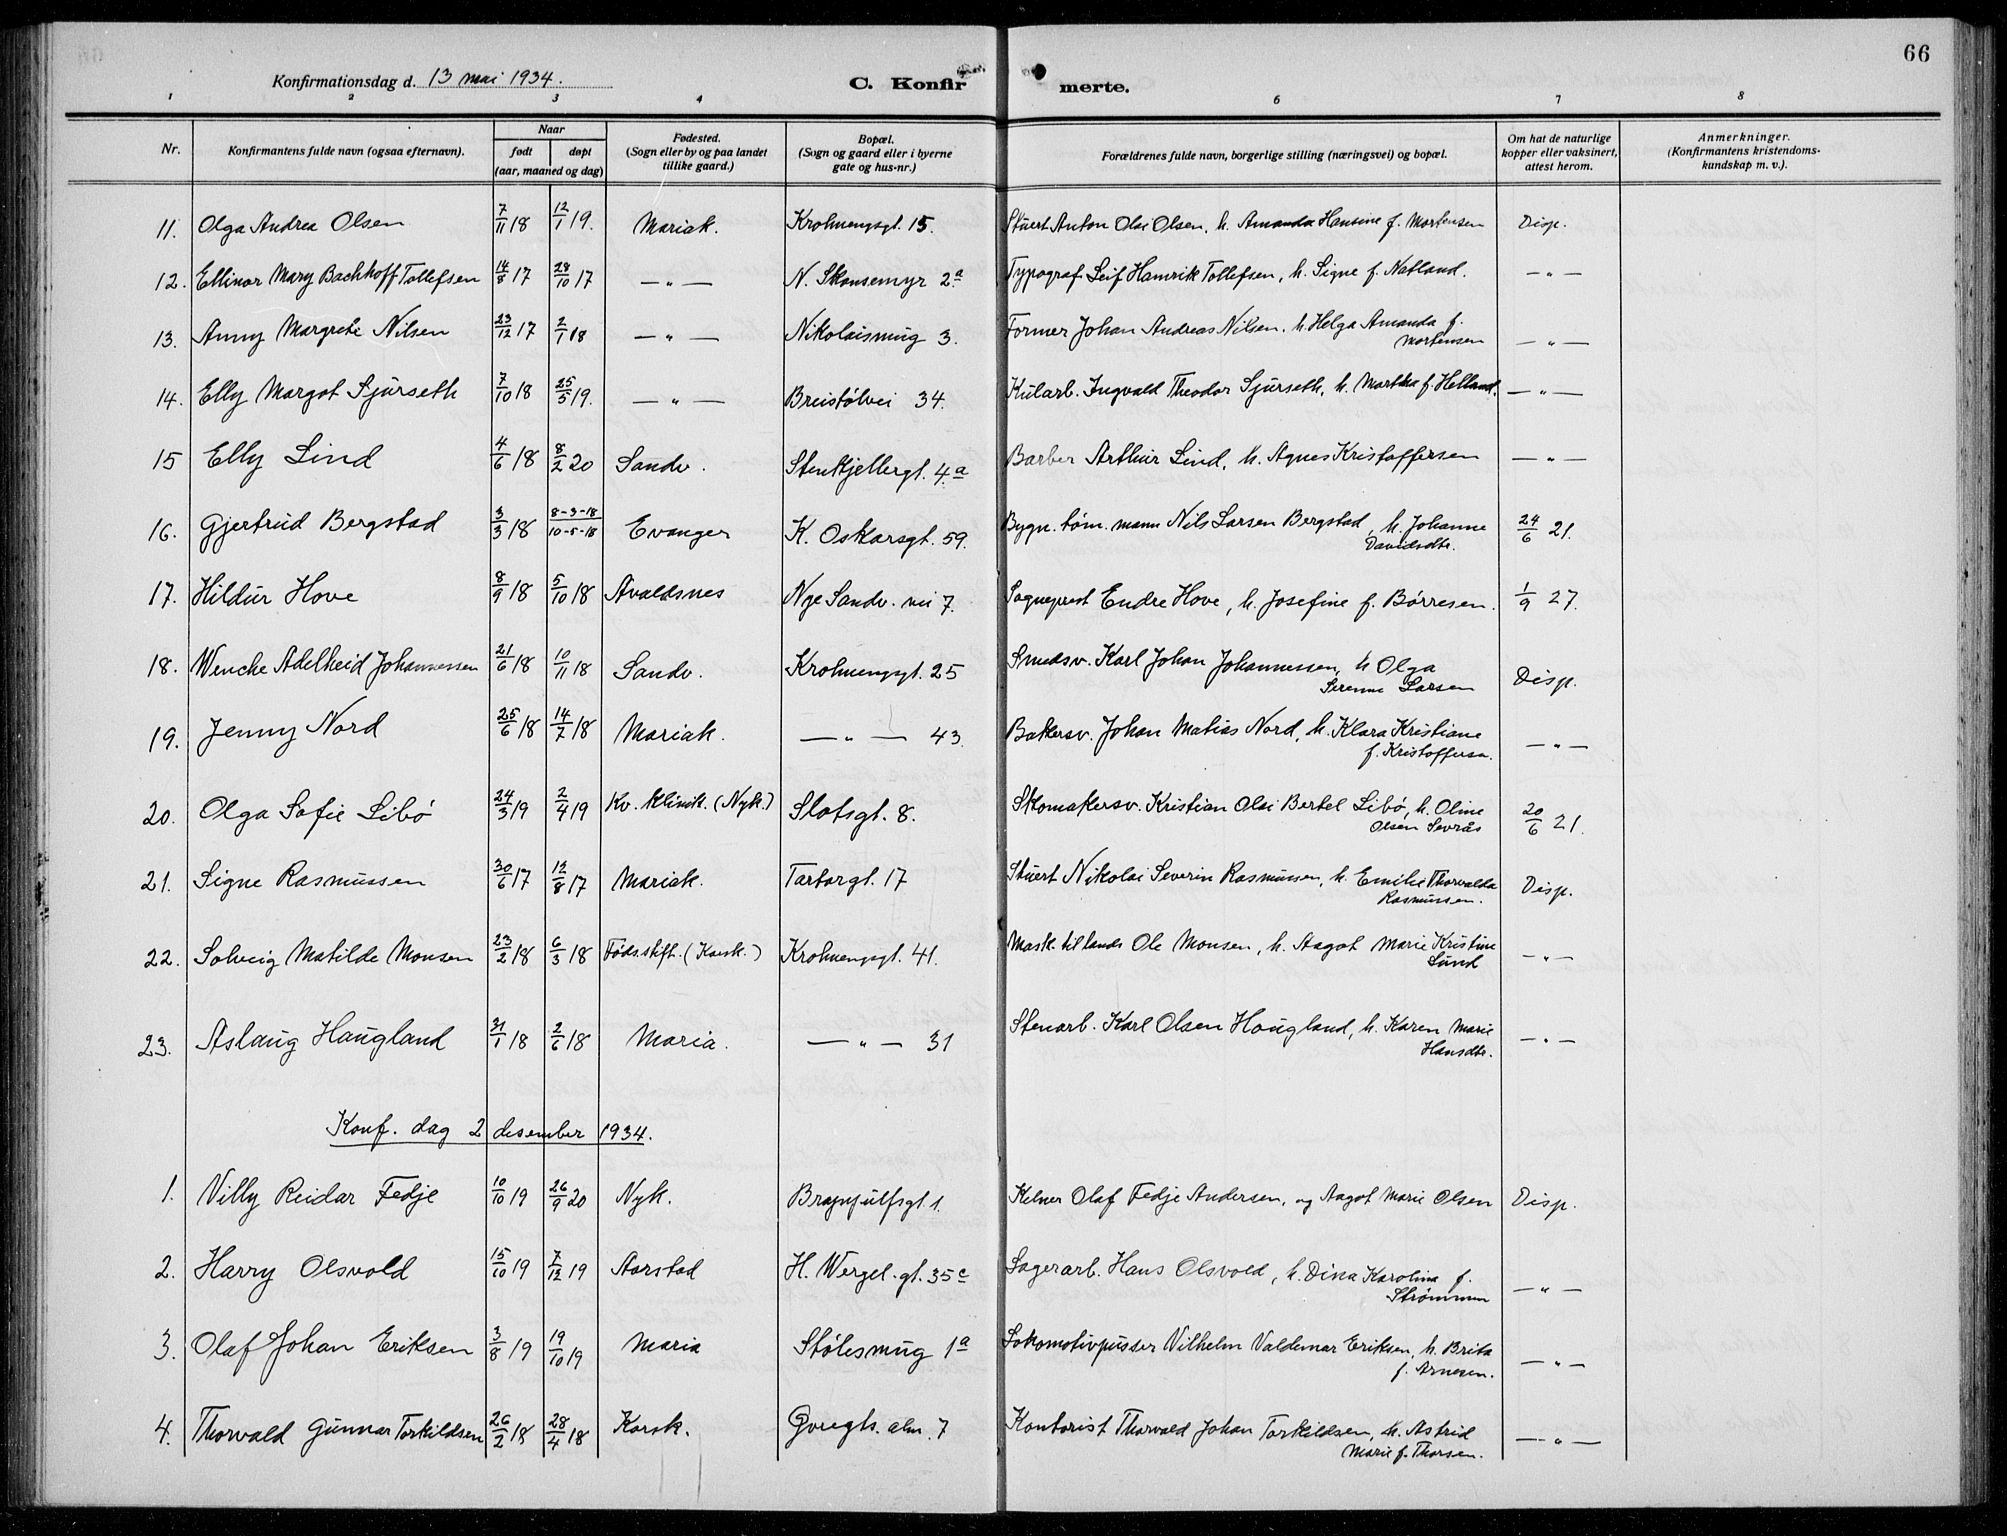 66
Konfirmationsdag d. 13 mai 1934.
C. Konfirmerte.
1 2 3 4 6 7 8
Nr. | Konfirmantens fulde navn (ogsaa efternavn). | Naar født døpt (aar, maaned og dag) | Fødested. (Sogn eller by og paa landet tillike gaard.) | Bopæl. (Sogn og gaard eller i byerne gate og hus-nr.) | Forældrenes fulde navn, borgerlige stilling (næringsvei) og bopæl. | Om hat de naturlige kopper eller vaksinert, attest herom. | Anmerkninger. (Konfirmantens kristendomskundskap m. v.).
11. Olga Andrea Olsen 7/11 18 12/1 19. Mariak. Krohnengsgt. 15. Stuert Anton Olai Olsen, h. Amanda Hansine f. Mortensen Disp.
12. Ellinor Mary Bachhoff Tollefsen 14/8 17 28/10 17 —„— N. Skansemyr 2a Typograf Leif Henrik Tollefsen, h. Signe f. Natland. —„—
13. Anny Margrete Nilsen 23/12 17 2/1 18 —„— Nikolaismug 3. Former Johan Andreas Nilsen, h. Helga Amanda f.
Mortensen —„—
14. Elly Margot Sjurseth 7/10 18 25/5 19. —„— Breistølvei 34. Kularb. Ingvald Theodor Sjurseth, h. Martha f. Helland. —„—
15 Elly Lind 4/6 18 8/2 20 Sandv. Stenkjellergt. 4a Barber Arthur Lind, h. Agnes Kristoffersen —„—
16. Gjertrud Bergstad 3/3 18 8-3-18/10-5-18 Evanger K. Oskarsgt. 59. Bygn. tøm. mann Nils Larsen Bergstad, h. Johanne
Davidsdtr. 24/6 21.
17. Hildur Hove 8/9 18 5/10 18 Avaldsnes Nye Sandv. vei 7. Sogneprest Endre Hove, h. Josefine f. Børresen. 1/9 27.
18. Wenche Adelheid Johannessen 21/6 18 10/11 18 Sandv. Krohnengsgt. 25 Smedsv. Karl Johan Johannessen, h Olga
Serenne Larsen Disp.
19. Jenny Nord 25/6 18 14/7 18 Mariak. —„— 43. Bakersv. Johan Matias Nord, h. Klara Kristiane
f. Kristoffersen. —„—
20. Olga Sofie Libø 24/3 19 2/4 19 Kv. klinik. (Nyk.) Slotsgt. 8. Skomakersv. Kristian Olai Bertel Libø, h. Oline
Olsen Sevrås 20/6 21.
21. Signe Rasmussen 30/6 17 12/8 17 Mariak. Tartargt. 17 Stuert Nikolai Severin Rasmussen, h. Emilie Thorvalda
Rasmussen. Disp.
22. Solveig Matilde Monsen 23/2 18 6/3 18 Føds.stift. (Korsk.) Krohnengsgt. 41. Mask. til lands Ole Monsen, h. Aagot Marie Kristine
Lund —„—
23. Aslaug Haugland 31/1 18 2/6 18 Maria. —„— 31 Stenarb. Karl Olsen Haugland, h. Karen Marie
Hansdtr. —„—
Konf. dag 2 desember 1934.
1. Villy Reidar Fedje 10/10 19 26/9 20 Nyk. Brynjulfsgt. 1. Kelner Olaf Fedje Andersen, og Aagot Marie Olsen Disp.
2. Harry Olsvold 15/10 19 7/12 19 Aarstad H. Wergel. gt. 35c Lagerarb. Hans Olsvold, h. Dina Karolina f.
Strømmen —„—
3. Olaf Johan Eriksen 3/8 19 19/10 19 Maria Stølesmug 1a Lokomotivpusser Vilhelm Valdemar Eriksen, h. Brita
f. Arnesen. —„—
4. Thorvald Gunnar Torkildsen 26/2 18 28/4 18 Korsk. alm. 7 Kontorist Thorvald Johan Torkildsen, h. Astrid
Marie f. Thorsen. —„—